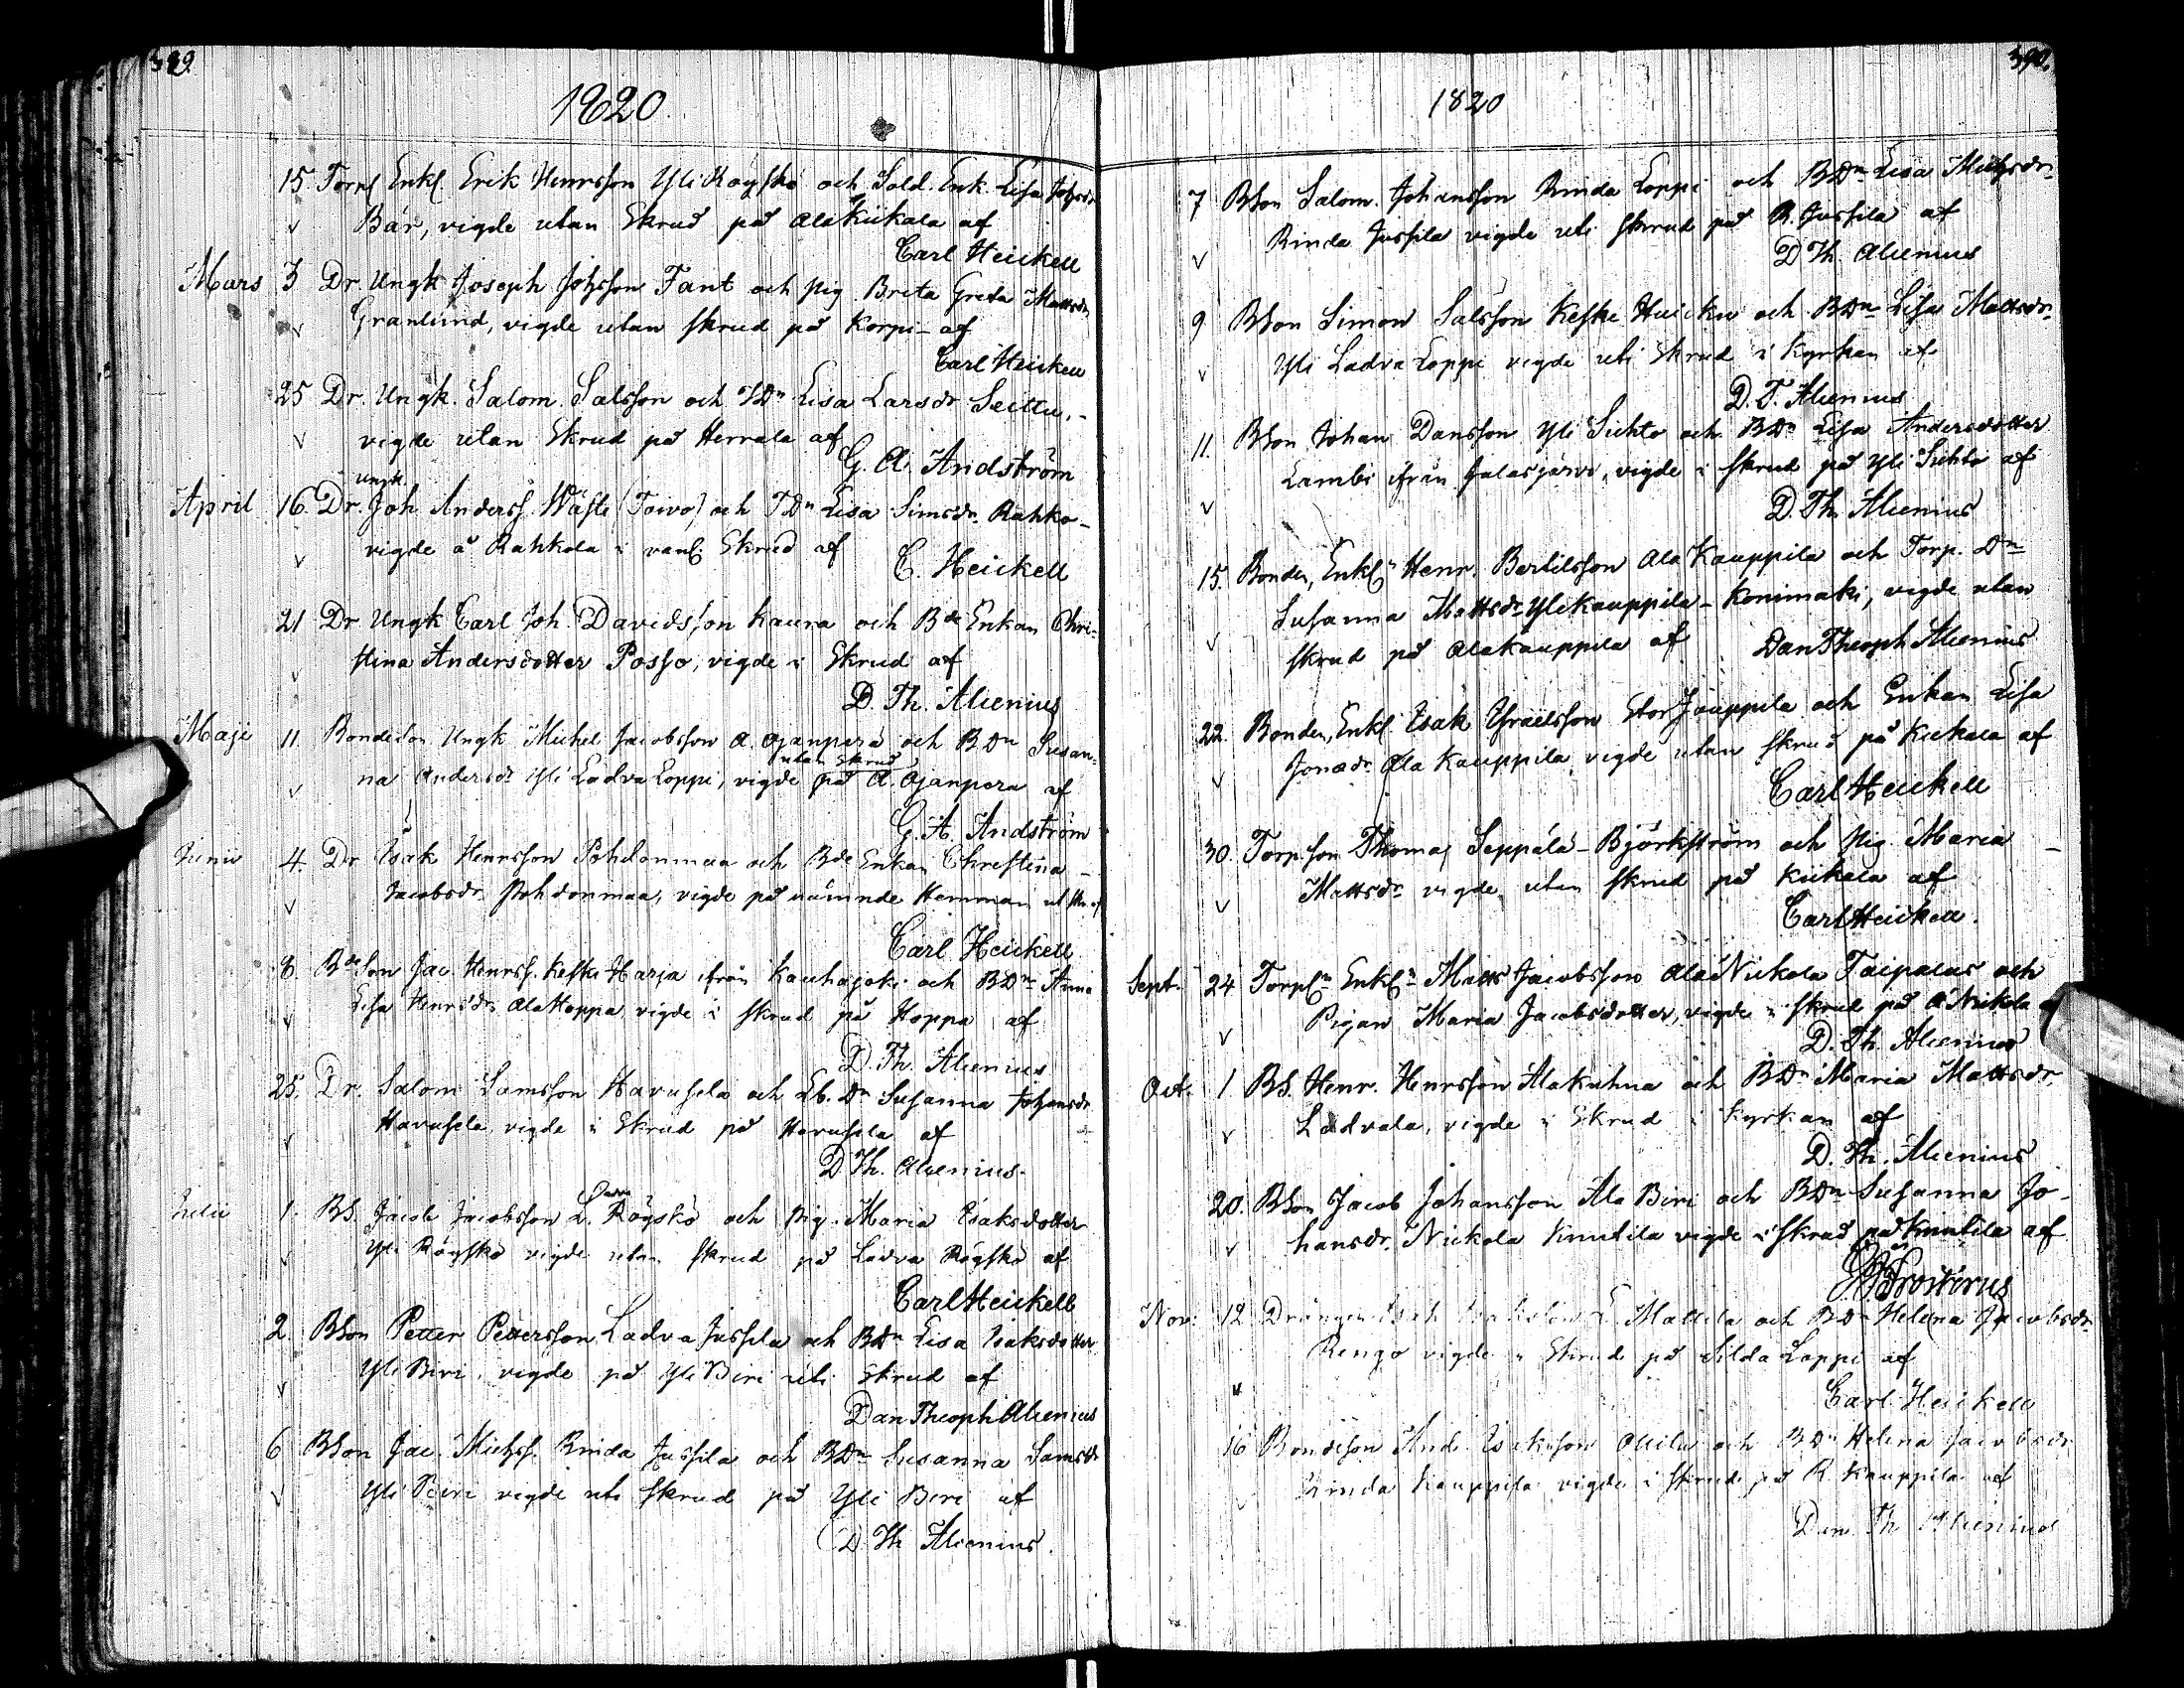 389
1820
15. Torp Enkl. Erik Henrsson Yli Röyskö och Sold. Enk. Lisa Johsdr
Bär, vigde utan Skrud på Ala Kiikala af
Carl Heickell
Mars 3 Dr. Ungk Joseph Johsson Fant och pig. Breta Greta Mattsdr
Granlund, vigde utan skrud på Korpi af
Carl Heickell
25 Dr. Ungk. Salom. Salsson och Dn Lisa Larsdr Seittu,
vigde utan Skrud på Herrala af
G. A. Andström
April 16. Dr. Ungk. Joh Anderss. Wäste (Toivo) och TDn Lisa Simsdr. Rahko-
vigde å Rahkola i vanl. Skrud af
C. Heickell
21 Dr Ungk Carl Joh. Davidsson Kaura och Bde Enkan Chri-
stina Andersdotter Posso, vigde i Skrud af
D. Th. Alcenius
Maji 11. Bondeson Ungk Michel Jacobsson A. Ojanpera och BDn Susan-
na Andersdr Yli Ladva Loppi, vigde utan Skrud på A. Ojanpera af
G. A. Andström
Junii 4. Dr Isak Henrsson Pohdonmaa och Bde Enkan Chrestina
Jacobsdr. Pohdonmaa, vigde på nämnde Hemman af
Carl Heickell
8. BdeSon Jac. Henrss. Keski Harja ifrån Kauhajoki och BDn Anna
Lisa Henrsdr AlaHoppa vigde i skrud på Hoppa af
D. Th. Alcenius
25. Dr. Salom Samsson Havusela och Lb. Dn Susanna Johansdr
Havusela, vigde i Skrud på Havusela af
D Th. Alcenius.
Julii 1. BS. Jacob Jacobsson L. Röyskö och pig. Maria Isaksdotter
Yli Röyskö vigde utan skrud på Ladva Röyskö af
Carl Heickell
2 BSon Petter Pettersson Ladva Jussila och BDn Lisa Isaksdotter
Yli Biri, vigde på Yli Biri uti Skrud af
Dan Theoph Alcenius
6 BSon Jac. Michss. Rinda Jussila och BDn Susanna Samsdr
Yli Biri vigde uti skrud på Yli Biri af
D Th Alcenius.
390.
1820
7 BSon Salom. Johansson Rinda Loppi och BDn Lisa Michsdr
Rinda Jussila vigde uti skrud på R. Jussila af
D Th. Alcenius
9 BSon Simon Salsson Keski Huicku och BDn Lisa Mattsdr
Yli Ladva Loppi vigde uti Skrud i Kyrkan af
D. T. Alcenius
11. BSon Johan Dansson Yli Suhto och BDn Lisa Andersdotter
Lambi ifrån Jalasjärvi, vigde i skrud på Yli Suhto af
D. Th. Alcenius
15. Bonden, Enkl. Henr. Bertilsson Ala Kauppila och Torp. Dn
Susanna Mattsdr Ylikauppila-Konimäki, vigde utan
skrud på Alakauppila af Dan Theoph Alcenius
22. Bonden, Enkl. Isak Israelsson Stor Jouppila och Enkan Lisa
Jonasdr. Ala Kauppila, vigde utan skrud på Kiikala af
Carl Heickell
30. Torp.son Thomas Seppälä-Björkström och pig. Maria
Mattsdr vigde utan skrud på Kiikala af
Carl Heickell.
Sept. 24 Torp. Enkl. Matts Jacobsson Ala Nickola Taipalus och
Pigan Maria Jacobsdotter, vigde i skrud på A Nickola af
D. Th. Alcenius
Oct. 1 BS. Henr. Henrsson Alakuhna och BDn Maria Mattsdr
Ladvala, vigde i Skrud i Kyrkan af
D. Th. Alcenius
20. BSon Jacob Johansson Ala Biri och BDn Susanna Jo-
hansdr. Nickola Knutila vigde i skrud på Knutila af
Prosterus
Nov. 12 Drängen Mattila och BDn Helena Jacobsdr
Rengo vigde i Skrud på Silda Loppi af
Carl Heickell
16 Bondeson And. Isaksson Ollila och BDn Helena Jacobsdr
Rinda Kauppila vigde i skrud på R. Kauppila af
Dan Th Alcenius